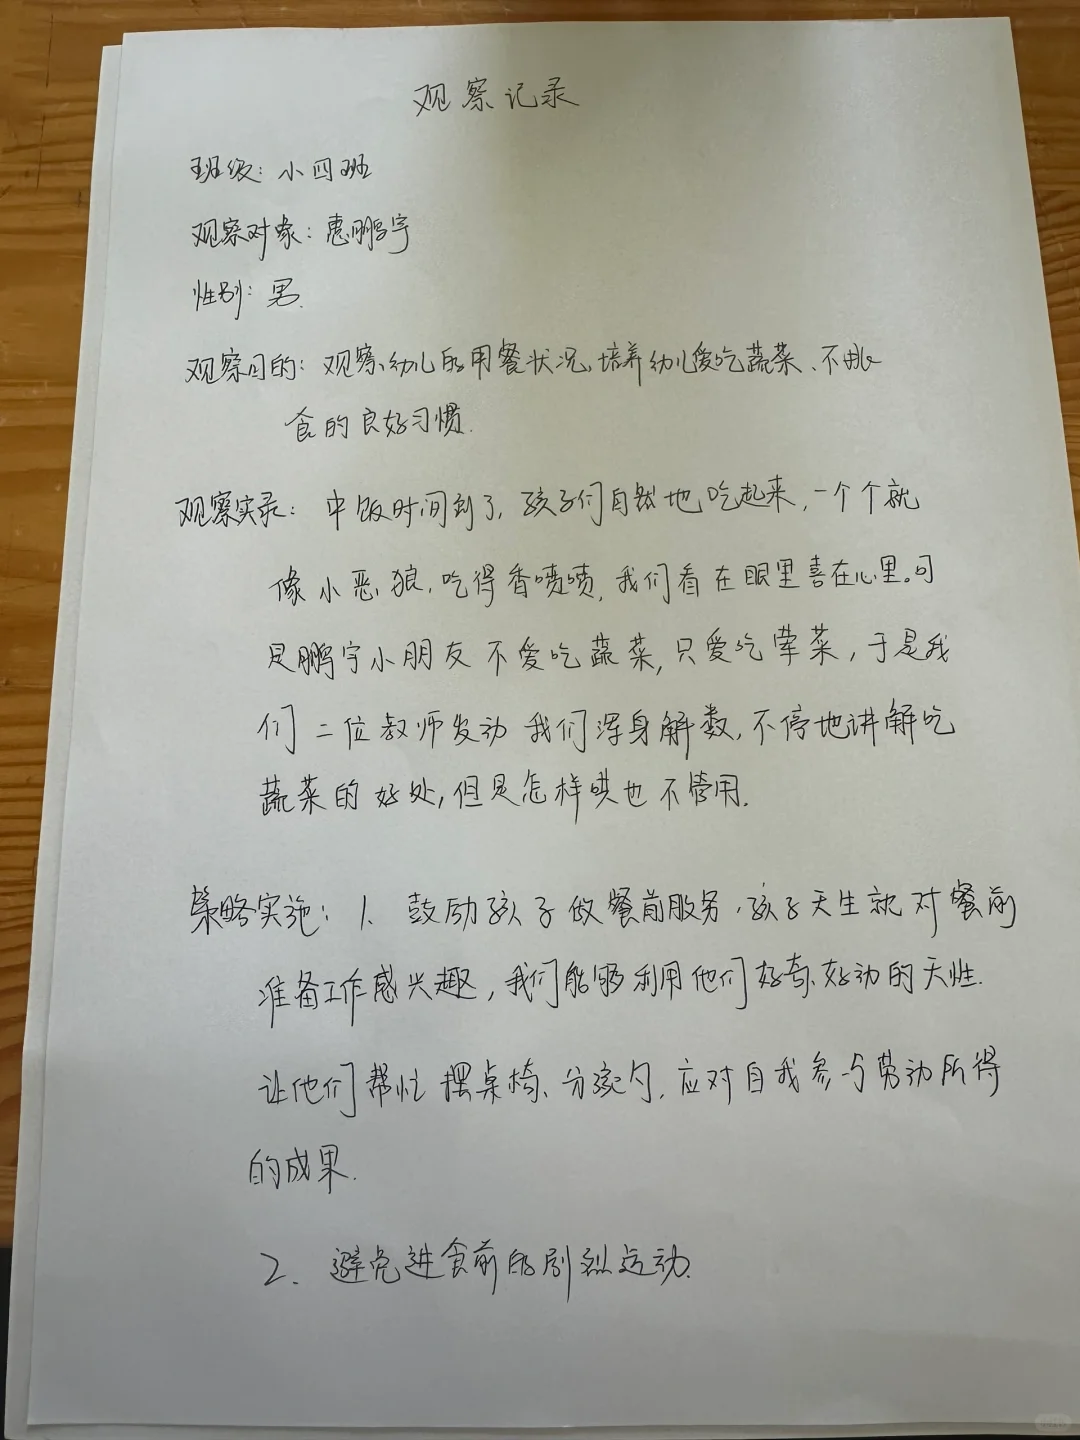 观察记录
班级：小四班
观察对象：惠鹏宇
性别：男.
观察目的：观察幼儿的用餐状况,培养幼儿爱吃蔬菜、不挑
食的良好习惯.
观察实录：中饭时间到了,孩子们自然地吃起来,一个个就
像小恶狼,吃得香喷喷,我们看在眼里喜在心里。可
是鹏宇小朋友不爱吃蔬菜,只爱吃荤菜,于是我
们二位教师发动我们浑身解数,不停地讲解吃
蔬菜的好处,但是怎样哄也不管用.
策略实施：1、鼓励孩子做餐前服务,孩子天生就对餐前
准备工作感兴趣,我们能够利用他们好奇、好动的天性.
让他们帮忙摆桌椅、分碗勺,应对自我参与劳动所得
的成果.
2.避免进食前的剧烈运动.